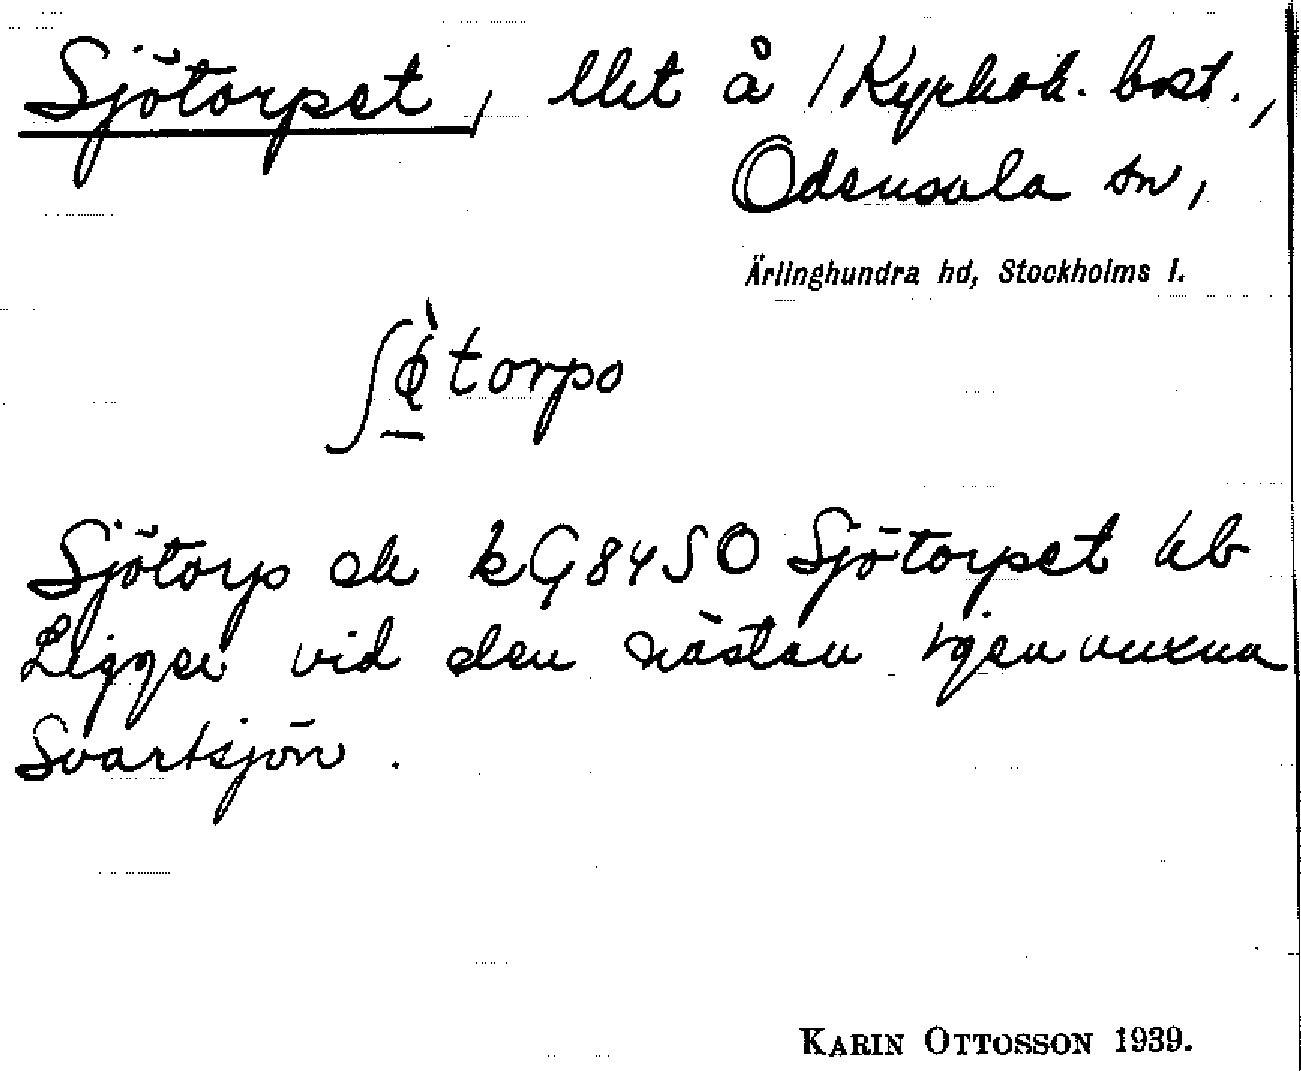 Sjötorpet, llet å 1 Kyrkoh. bost.,
Odensala sn,
Ärlinghundra hd, Stockholms l.
ʃø̀torpo
Sjötorp ek kG 84 SO Sjötorpet kb
Ligger vid den nästan igenvuxna
Svartsjön.
KARIN OTTOSSON 1939.